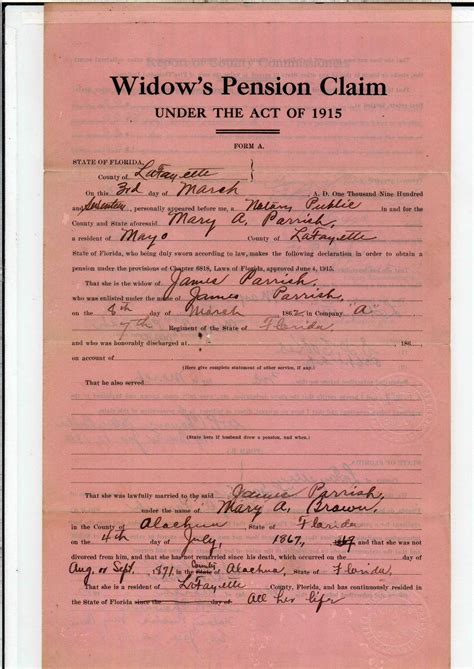 Widow's Pension Claim
UNDER THE ACT OF 1915
FORM A.
STATE OF FLORIDA,
County of LaFayette
On this 3rd day of March A. D. One Thousand Nine Hundred
and Seventeen personally appeared before me, a Notary Public in and for the
County and State aforesaid Mary A. Parrish,
a resident of Mayo County of LaFayette
State of Florida, who being duly sworn according to law, makes the following declaration in order to obtain a
pension under the provisions of Chapter 6818, Laws of Florida, approved June 4, 1915.
That she is the widow of James Parrish,
who was enlisted under the name of James Parrish,
on the 8th day of March 1862 in Company "A"
7th Regiment of the State of Florida
and who was honorably discharged at 186
on account of
(Here give complete statement of other service, if any.)
That he also served
(State here if husband drew a pension, and when.)
That she was lawfully married to the said James Parrish,
under the name of Mary A. Brown,
in the County of Alachua, State of Florida
on the 4th day of July, 1867, and that she was not
divorced from him, and that she has not remarried since his death, which occurred on the day of
Aug. or Sept. 1871 in the State of County Alachua, State of Florida.
That she is a resident of LaFayette County, Florida, and has continuously resided in
the State of Florida since the day of All her life